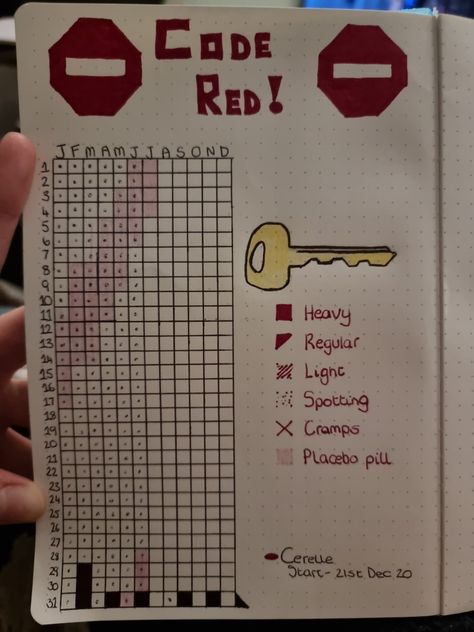 CODE
RED!
J F M A M J J A S O N D
1
2
3
4
5
6
7
8
9
10
11
12
13
14
15
16
17
18
19
20
21
22
23
24
25
26
27
28
29
30
31
Heavy
Regular
Light
Spotting
Cramps
Placebo pill
Cerelle
Start - 21st Dec 20